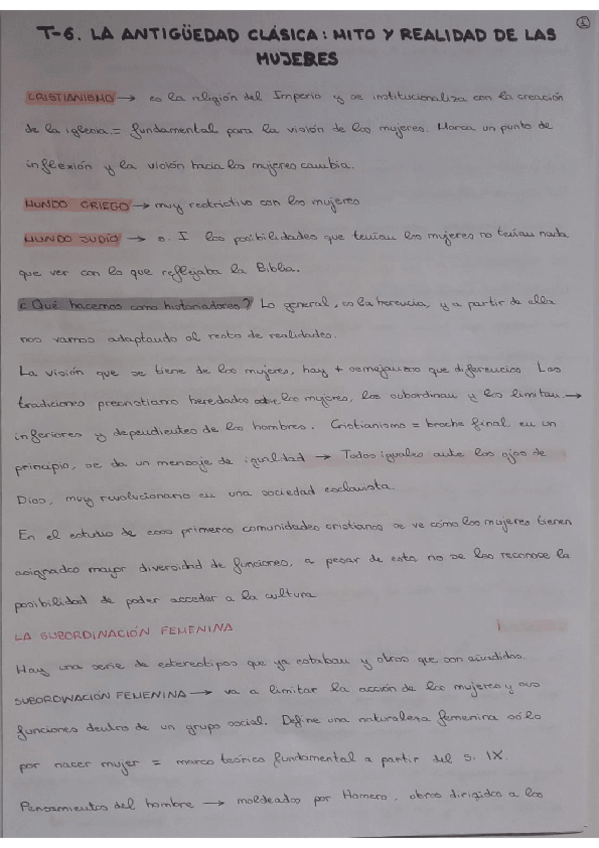 1
T-6. LA ANTIGÜEDAD CLÁSICA: MITO Y REALIDAD DE LAS
MUJERES
CRISTIANISMO → es la religión del Imperio y se institucionaliza con la creación
de la iglesia = fundamental para la visión de las mujeres. Marca un punto de
inflexión y la visión hacia las mujeres cambia.
MUNDO GRIEGO → muy restrictivo con las mujeres
MUNDO JUDÍO → s. I las posibilidades que tenían las mujeres no tenían nada
que ver con lo que reflejaba la Biblia.
¿Qué hacemos como historiadores? Lo general, es la herencia, y a partir de ella
nos vamos adaptando al resto de realidades.
La visión que se tiene de las mujeres, hay + semejanzas que diferencias. Las
tradiciones precristiana heredadas sobre las mujeres, las subordinan y las limitan →
inferiores y dependientes de los hombres. Cristianismo = broche final, en un
principio, se da un mensaje de igualdad → Todos iguales ante los ojos de
Dios, muy revolucionario en una sociedad esclavista.
En el estudio de esas primeras comunidades cristianas se ve cómo las mujeres tienen
asignadas mayor diversidad de funciones, a pesar de esta no se les reconoce la
posibilidad de poder acceder a la cultura
LA SUBORDINACIÓN FEMENINA
Hay una serie de estereotipos que ya estaban y otros que son añadidos.
SUBORDINACIÓN FEMENINA → va a limitar la acción de las mujeres y sus
funciones dentro de un grupo social. Define una naturaleza femenina sólo
por nacer mujer = marco teórico fundamental a partir del s. IX.
Pensamientos del hombre → moldeados por Homero, obras dirigidas a los